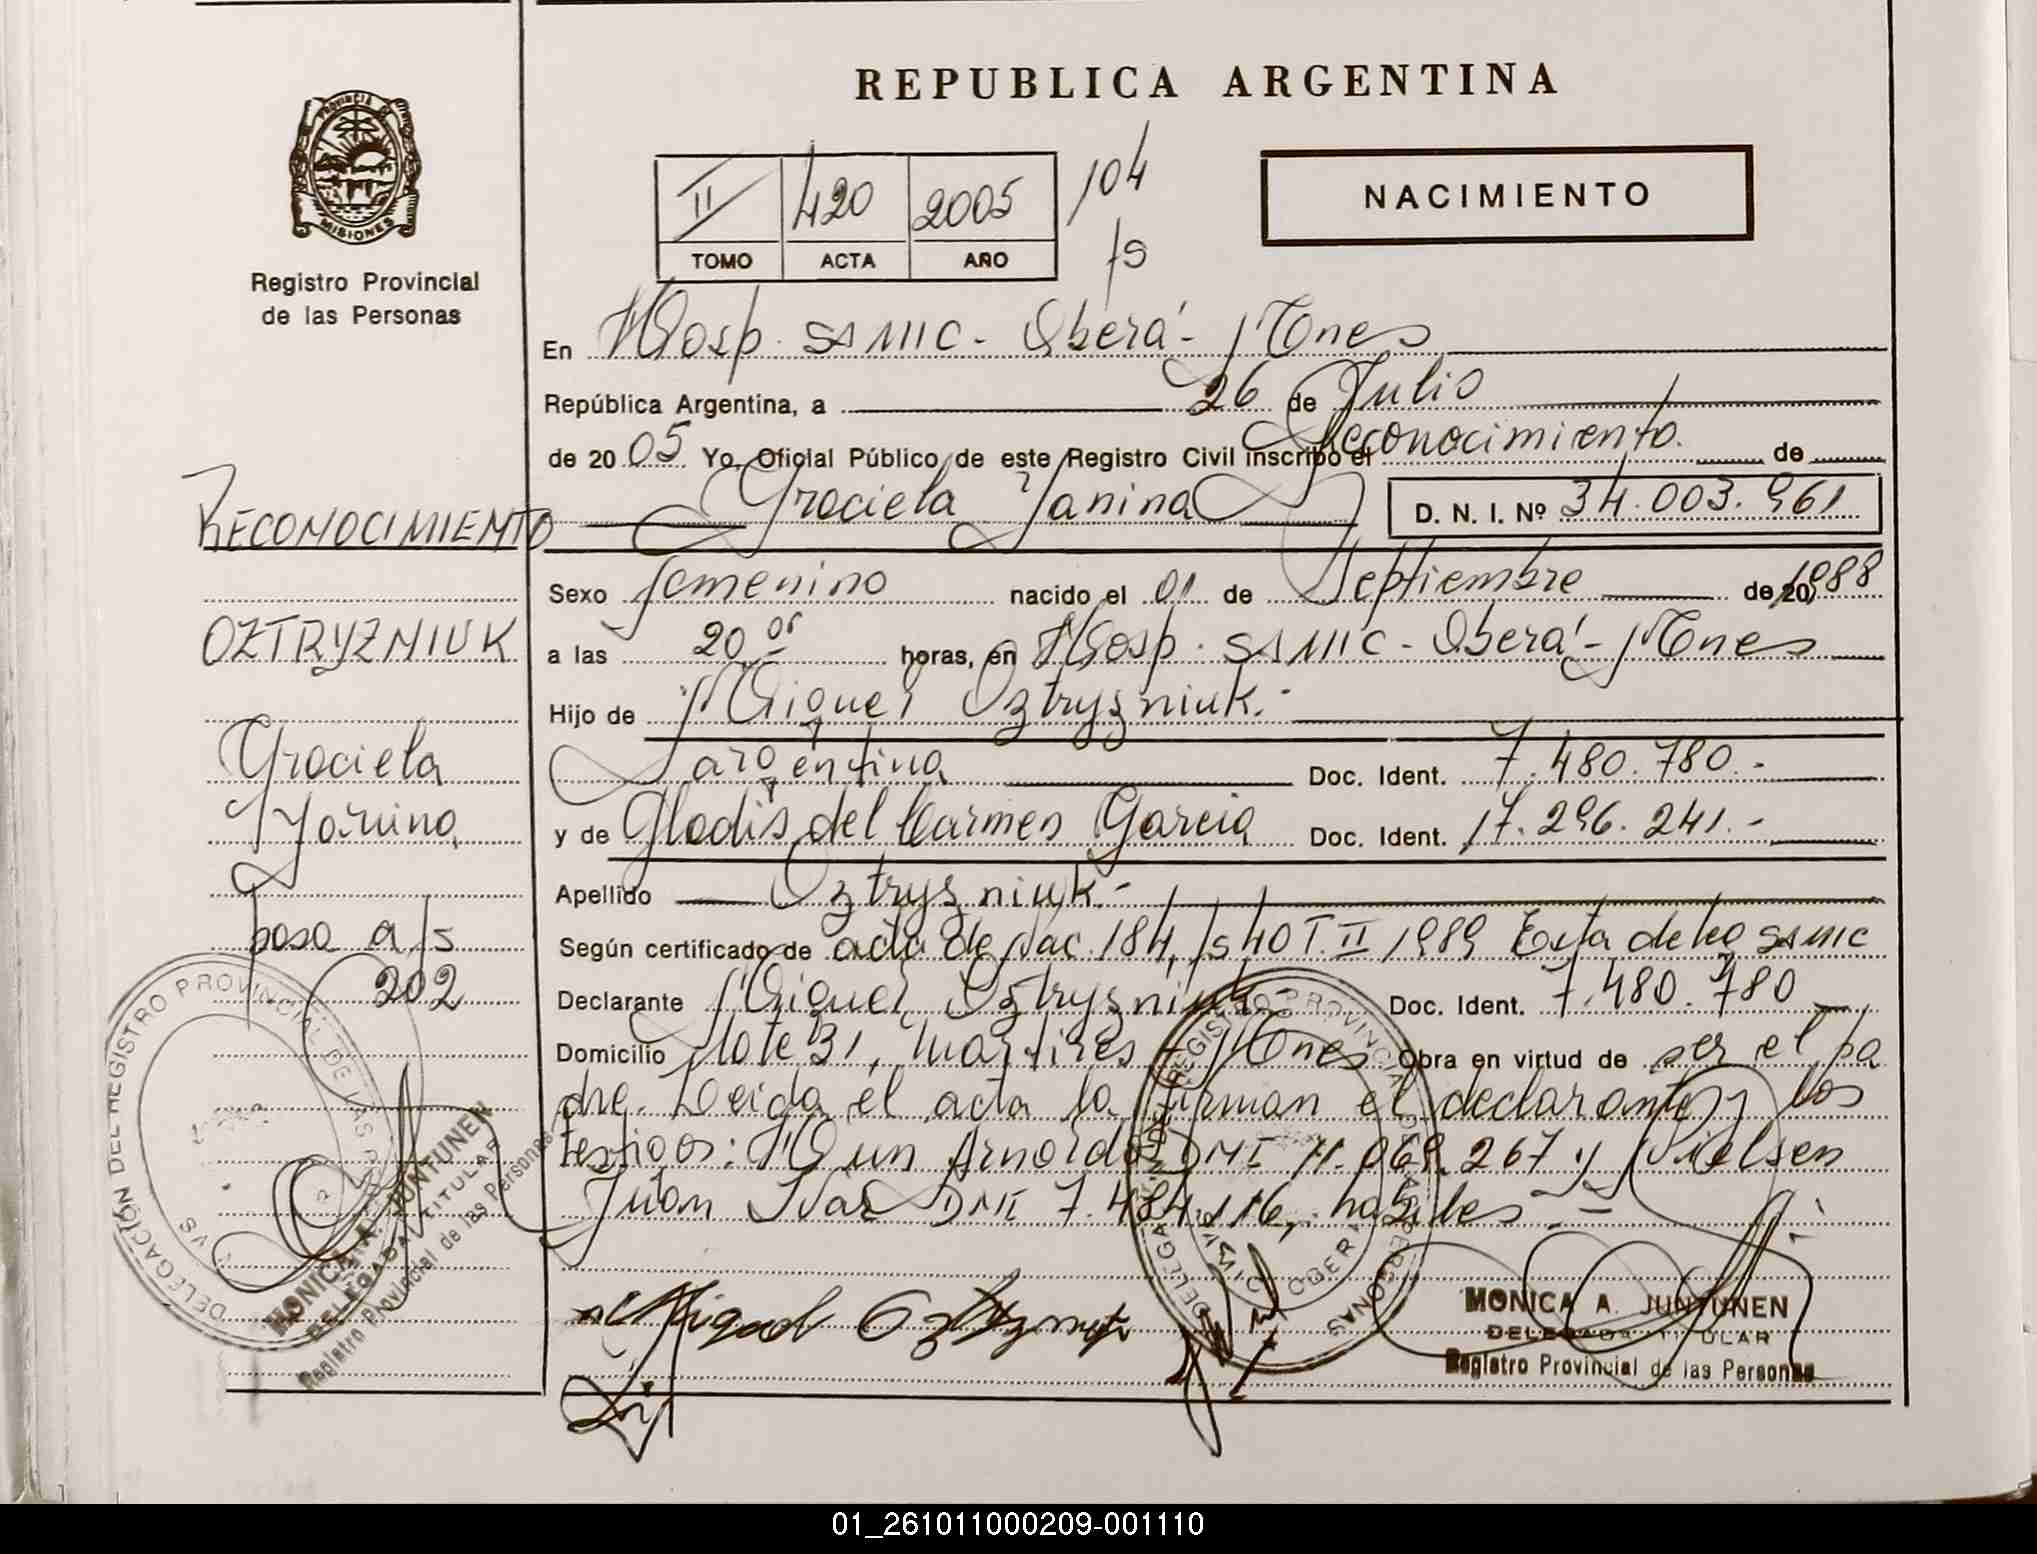 REPUBLICA ARGENTINA
PROVINCIA DE
MISIONES
Registro Provincial
de las Personas
II 420 2005 104
TOMO ACTA AÑO fs
NACIMIENTO
En Hosp. SAMIC - Oberá - Mnes
República Argentina, a 26 de Julio
de 20 05 Yo, Oficial Público de este Registro Civil inscribo el Reconocimiento. de
Graciela Yanina D. N. I. Nº 34.003.961
Sexo femenino nacido el 01 de Septiembre de 20 1988
a las 20,05 horas, en Hosp. SAMIC - Oberá - Mnes
Hijo de Miguel Oztryzniuk.-
argentina Doc. Ident. 7.480.780.-
y de Gladis del Carmen Garcia Doc. Ident. 17.296.241.-
Apellido Oztryzniuk.-
Según certificado de acta de Nac. 184, fs 40 T. II 1989 Esta deleg SAMIC
Declarante Miguel Oztryzniuk- Doc. Ident. 7.480.780
Domicilio Lote 31, Martires - Mnes Obra en virtud de ser el pa
dre. Leida el acta la firman el declarante y los
testigos: Hun Arnoldo DNI 11.069.267 y Nielsen
Juan Ivar DNI 7.484.116, habiles.-
RECONOCIMIENTO
OZTRYZNIUK
Graciela
Yanina
pasa a fs
202
DELEGACIÓN DEL REGISTRO PROVINCIAL DE LAS
MONICA A. JUNTUNEN
DELEGADA TITULAR
Registro Provincial de las Personas
Miguel
REGISTRO PROVINCIAL
PERSONAS
OBERA
MONICA A. JUNTUNEN
DELEGADA TITULAR
Registro Provincial de las Personas
01_261011000209-001110